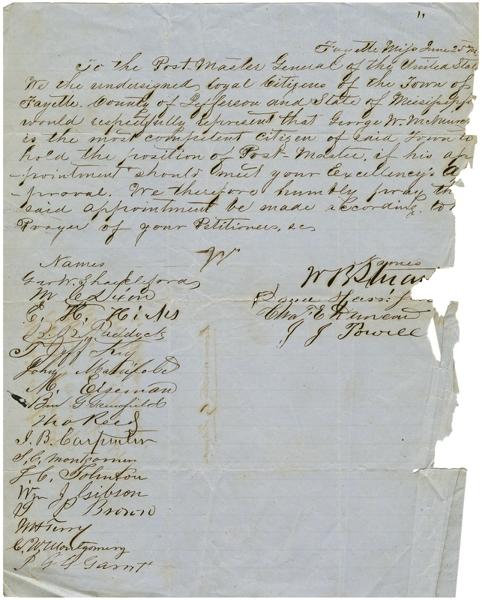 Fayette Miss June 25
To the Post Master General of the United Stat
We the undersigned loyal Citizens of the Town of
Fayette, County of Jefferson and State of Mississipp
would respectfully represent that George W. McMurc
is the most competent citizen of said Town to
hold the position of Post-Master, if his ap
-pointment should meet your Excellency's A
-proval. We therefore humbly pray th
said appointment be made according to
Prayer of your Petitioners, &c
Names
Names
W B
E. H. Hicks
Chas E Duncan
Paddock
J J Powell
John Manifold
M. Eiseman
Ben G
Tho Reed
J. B. Carpenter
S. C. Montgomery
J. C. Johnton
Wm J. Gibson
Brown
W H Terry
C. W. Montgomery